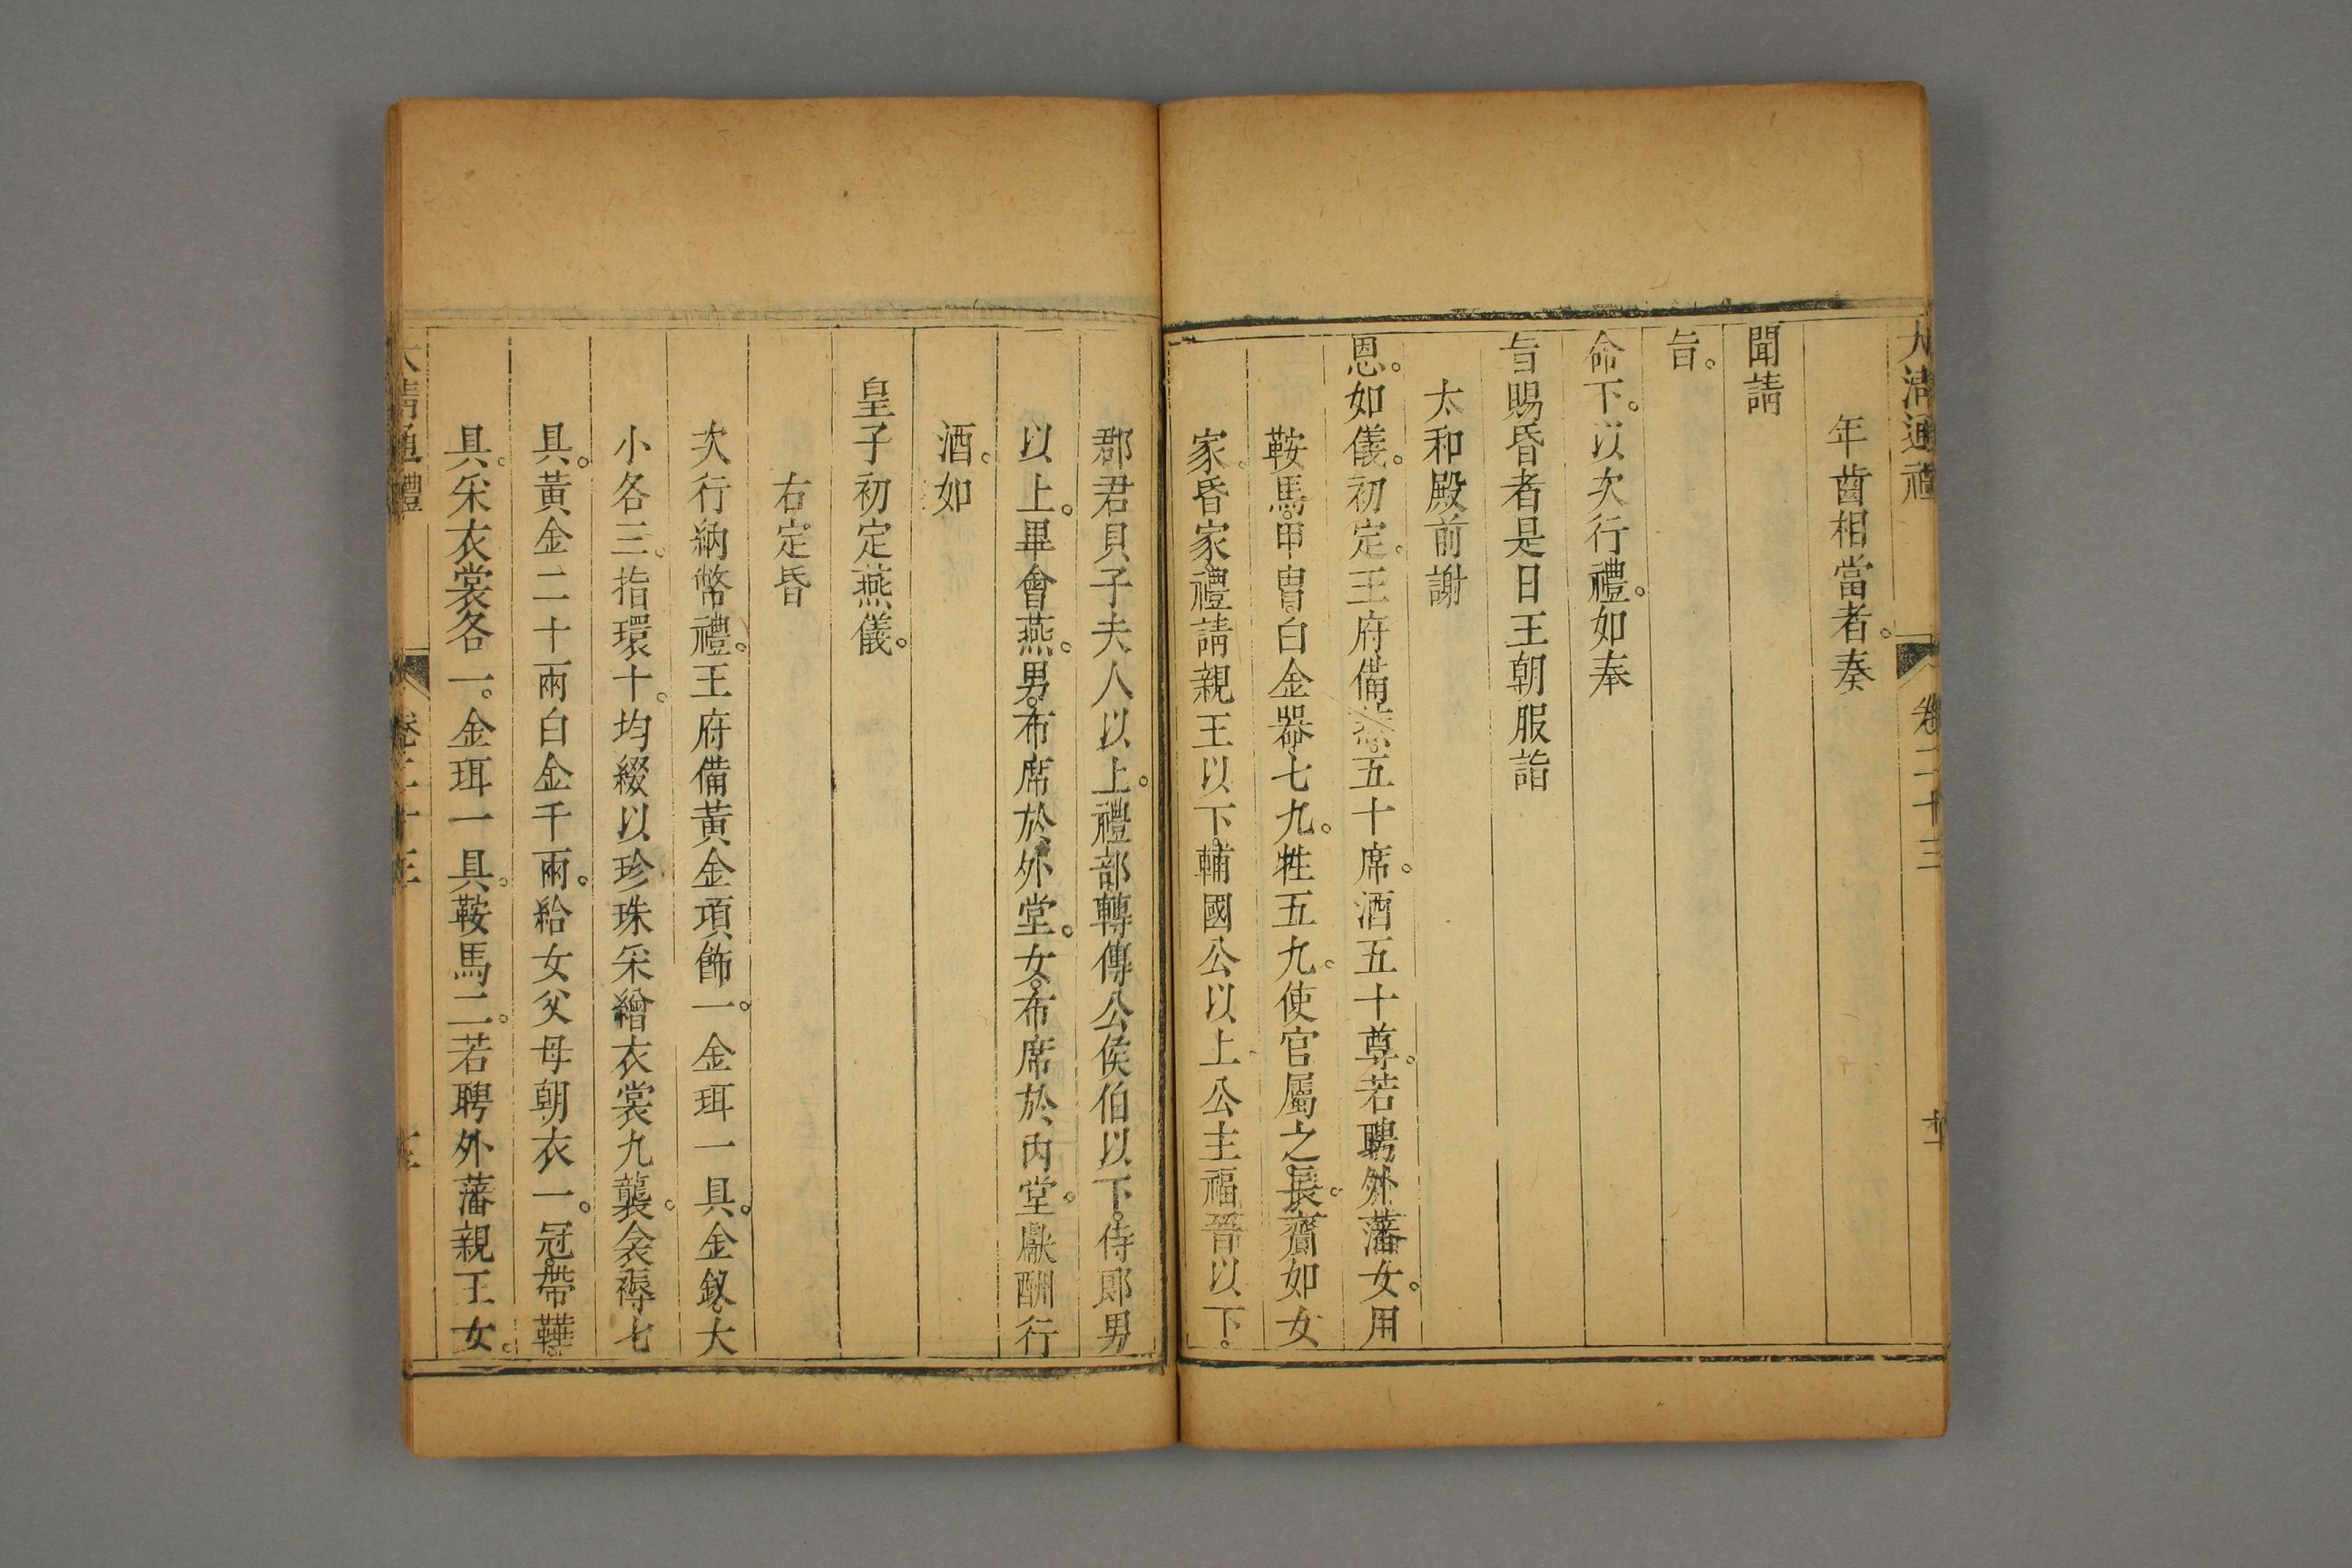 大清通禮 卷二十三
年齒相當者。奏
聞請
旨。
命下。以次行禮。如奉
旨賜昏者是日王朝服詣
太和殿前謝
恩。如儀。初定。王府備燕。五十席。酒五十尊。若聘外藩女。用
鞍馬。甲冑。白金器七九。牲五九。使官屬之長。齎如女
家。昏家禮請親王以下。輔國公以上。公主福晉以下。
郡君貝子夫人以上。禮部轉傳公侯伯以下。侍郎男
以上。畢會燕。男。布席於外堂。女。布席於內堂。獻酬行
酒。如
皇子初定燕儀。
右定昏
次行納幣禮。王府備黃金項飾一。金珥一具。金釵。大
小各三。指環十。均綴以珍珠采繒衣裳九襲。衾褥七
具。黃金二十兩白金千兩。給女父母朝衣一。冠。帶。鞾。
具。采衣裳各一。金珥一具。鞍馬二。若聘外藩親王女。
大清通禮 卷二十三